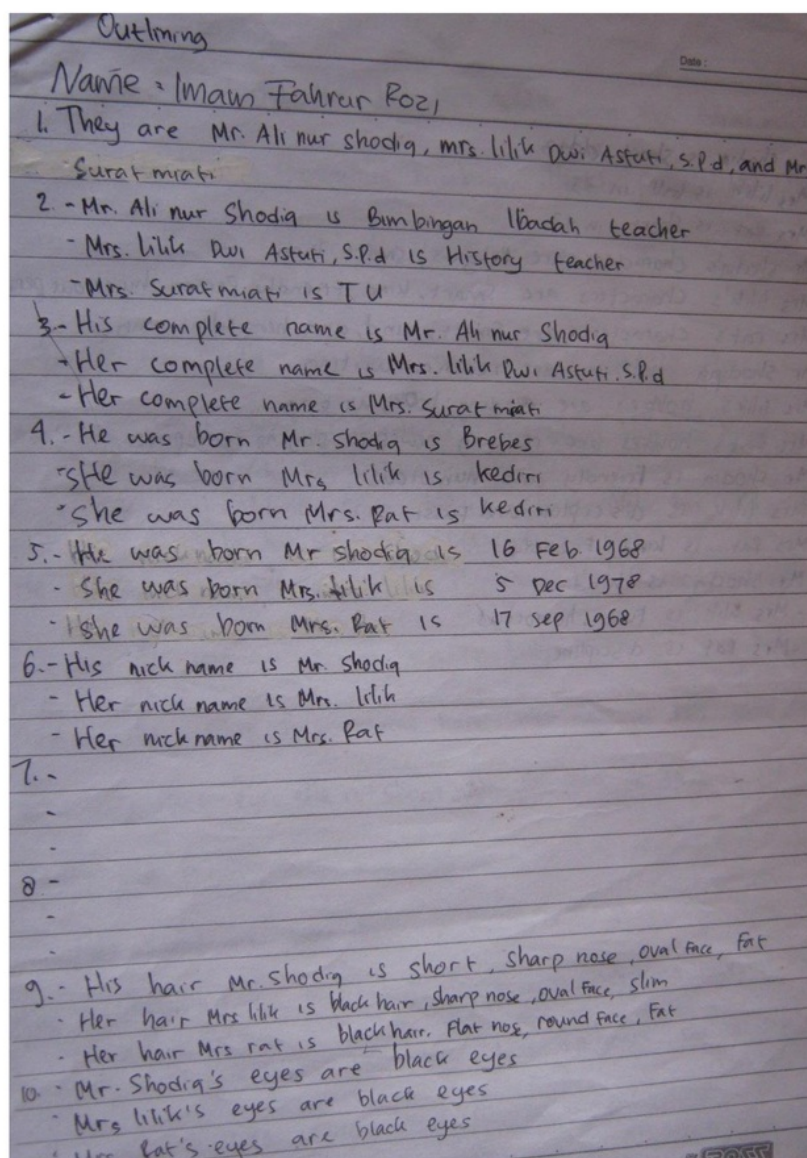 Outlining
Date :
Name : Imam Fahrur Rozi
1. They are Mr. Ali nur shodiq, mrs. lilik Dwi Astuti, S.P.d, and Mr
Suratmiati
2. - Mr. Ali nur Shodiq is Bimbingan Ibadah teacher
- Mrs. lilik Dwi Astuti, S.P.d is History teacher
- Mrs. Suratmiati is TU
3. - His complete name is Mr. Ali nur Shodiq
- Her complete name is Mrs. lilik Dwi Astuti. S.P.d
- Her complete name is Mrs. Suratmiati
4. - He was born Mr. shodiq is Brebes
- SHe was born Mrs lilik is kediri
- She was born Mrs. Rat is kediri
5. - He was born Mr shodiq is 16 Feb 1968
- She was born Mrs. lilik is 5 Dec 1978
- She was born Mrs. Rat is 17 Sep 1968
6. - His nick name is Mr. Shodiq
- Her nick name is Mrs. lilik
- Her nick name is Mrs. Rat
7. -
-
-
8 -
-
-
9. - His hair Mr. Shodiq is short, sharp nose, oval face, fat
- Her hair Mrs lilik is black hair, sharp nose, oval face, slim
- Her hair Mrs rat is black hair. Flat nose, round face, Fat
10. - Mr. Shodiq's eyes are black eyes
- Mrs lilik's eyes are black eyes
Rat's eyes are black eyes